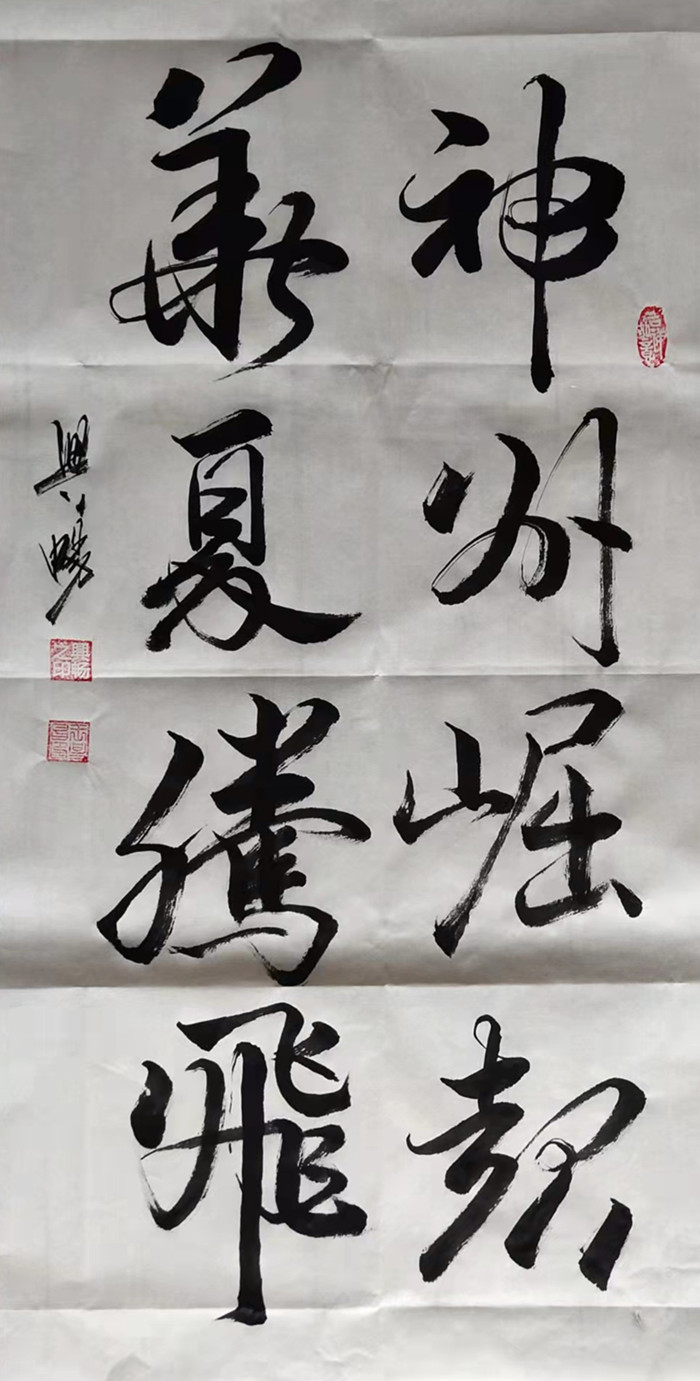 神州崛起
華夏騰飛
興暢